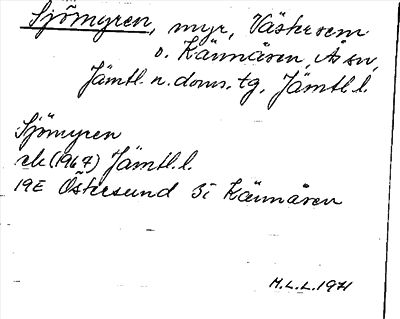 Sjömyren, myr, Väster om
o. Kännåsen, Ås sn,
Jämtl. n. doms. tg, Jämtl. l.
Sjömyren
ek (1964) Jämtl. l.
19E Östersund 5i Kännåsen
H.L.L. 1971